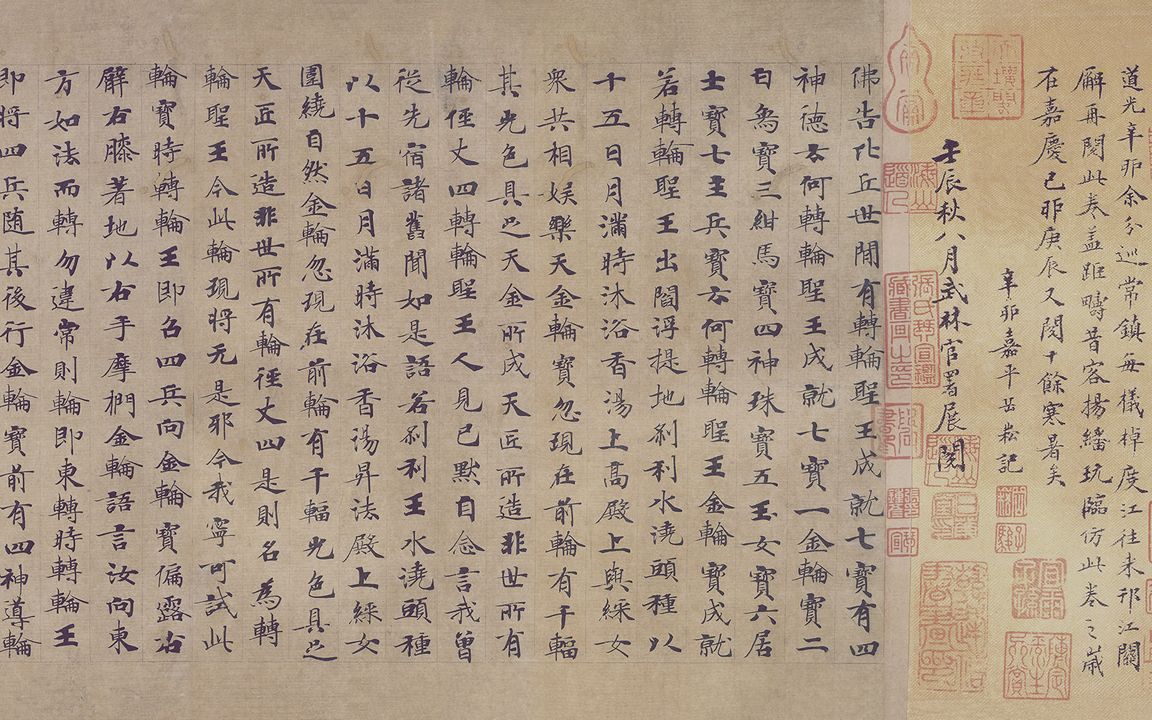 道光辛卯余分巡常鎮每檥棹度江往来邗江關
廨再閱此卷益距疇昔客揚繙玩臨仿此卷之歲
在嘉慶己卯庚辰又閱十餘寒暑矣
辛卯嘉平岳崧記
壬辰秋八月武林官署展閱
佛告比丘世間有轉輪聖王成就七寶有四
神德云何轉輪聖王成就七寶一金輪寶二
白為寶三紺馬寶四神珠寶五玉女寶六居
士寶七主兵寶云何轉輪聖王金輪寶成就
若轉輪聖王出閻浮提地剎利水澆頭種以
十五日月滿時沐浴香湯上高殿上與婇女
衆共相娛樂天金輪寶忽現在前輪有千輻
其光色具足天金所成天匠所造非世所有
輪徑丈四轉輪聖王人見已默自念言我曾
從先宿諸舊聞如是語若剎利王水澆頭種
以十五日月滿時沐浴香湯昇法殿上婇女
圍繞自然金輪忽現在前輪有千輻光色具足
天匠所造非世所有輪徑丈四是則名為轉
輪聖王今此輪現將无是耶今我寧可試此
輪寶時轉輪王即召四兵向金輪寶偏露右
臂右膝著地以右手摩捫金輪語言汝向東
方如法而轉勿違常則輪即東轉時轉輪王
即將四兵随其後行金輪寶前有四神導輪